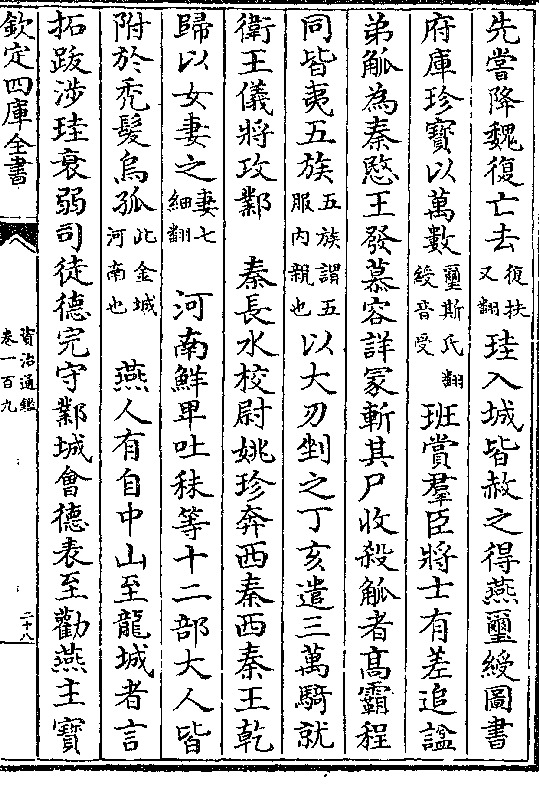 先嘗降魏復亡去復扶又翻珪入城皆赦之得燕璽綬圖書
府庫珍寶以萬數璽斯氏翻綬音受班賞羣臣將士有差追諡
弟觚為秦愍王發慕容詳冡斬其尸收殺觚者髙霸程
同皆夷五族五族謂五服内親也以大刃剉之丁亥遣三萬騎就
衛王儀將攻鄴 秦長水校尉姚珍奔西秦西秦王乾
歸以女妻之妻七細翻 河南鮮卑吐秣等十二部大人皆
附於禿髪烏孤此金城河南也 燕人有自中山至龍城者言
拓跋涉珪衰弱司徒德完守鄴城會德表至勸燕主寶
欽定四庫全書
資治通鑑
卷一百九
二十八